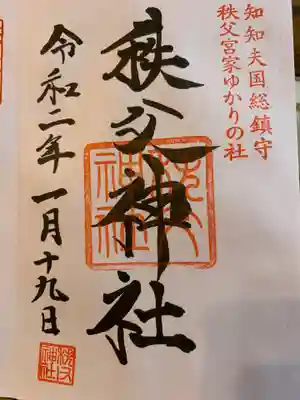 知知夫国総鎮守
秩父宮家ゆかりの社
秩父神社
令和二年一月十九日
秩父
神社
秩父
神社